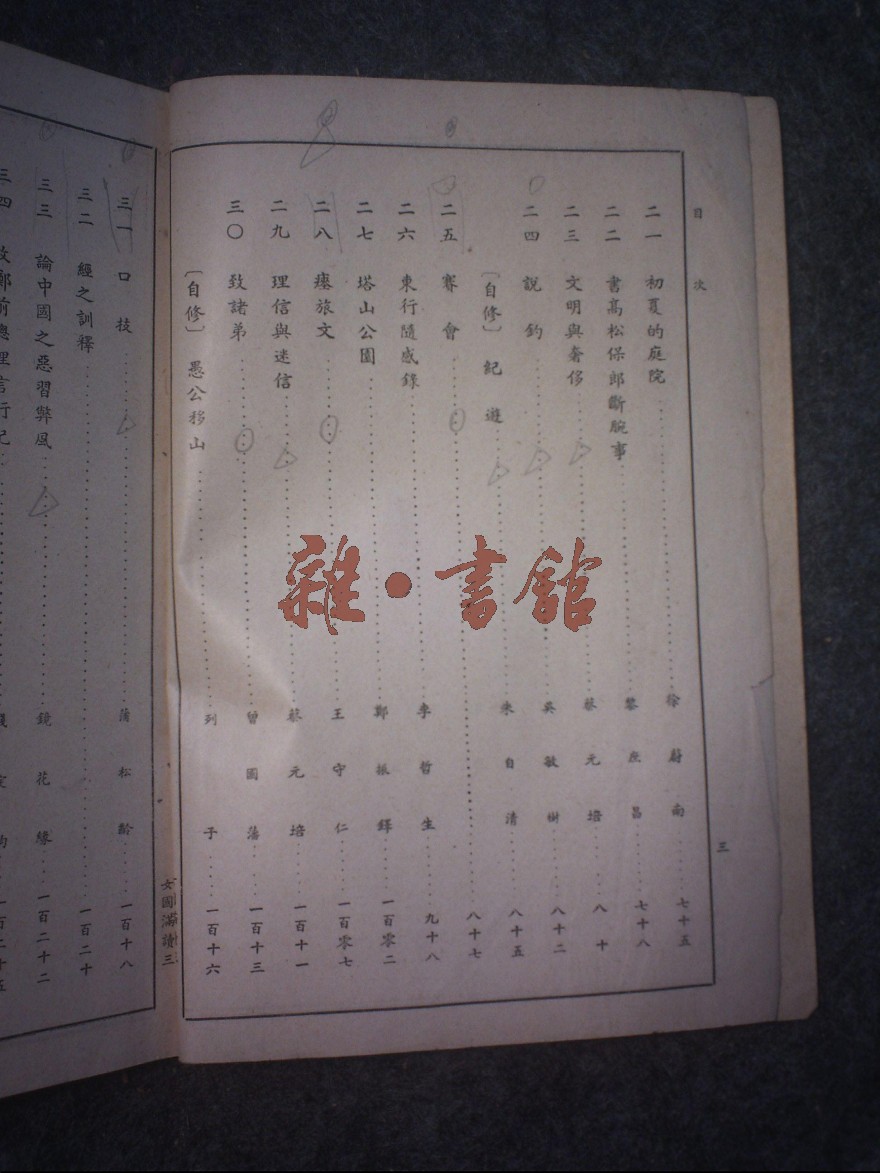 目次
三
二一 初夏的庭院 徐蔚南 七十五
二二 書高松保郎斷腕事 黎庶昌 七十八
二三 文明與奢侈 蔡元培 八十
二四 說釣 吳敏樹 八十二
〔自修〕 紀遊 朱自清 八十五
二五 賽會 八十七
二六 東行隨感錄 李哲生 九十八
二七 塔山公園 鄭振鐸 一百零二
二八 瘞旅文 王守仁 一百零七
二九 理信與迷信 蔡元培 一百十一
三〇 致諸弟 曾國藩 一百十三
〔自修〕 愚公移山 列子 一百十六
三一 口技 蒲松齡 一百十八
三二 經之訓釋 一百二十
三三 論中國之惡習弊風 鏡花緣 一百二十二
三四 故鄭前總理言行記 一百二十五
雜·書館